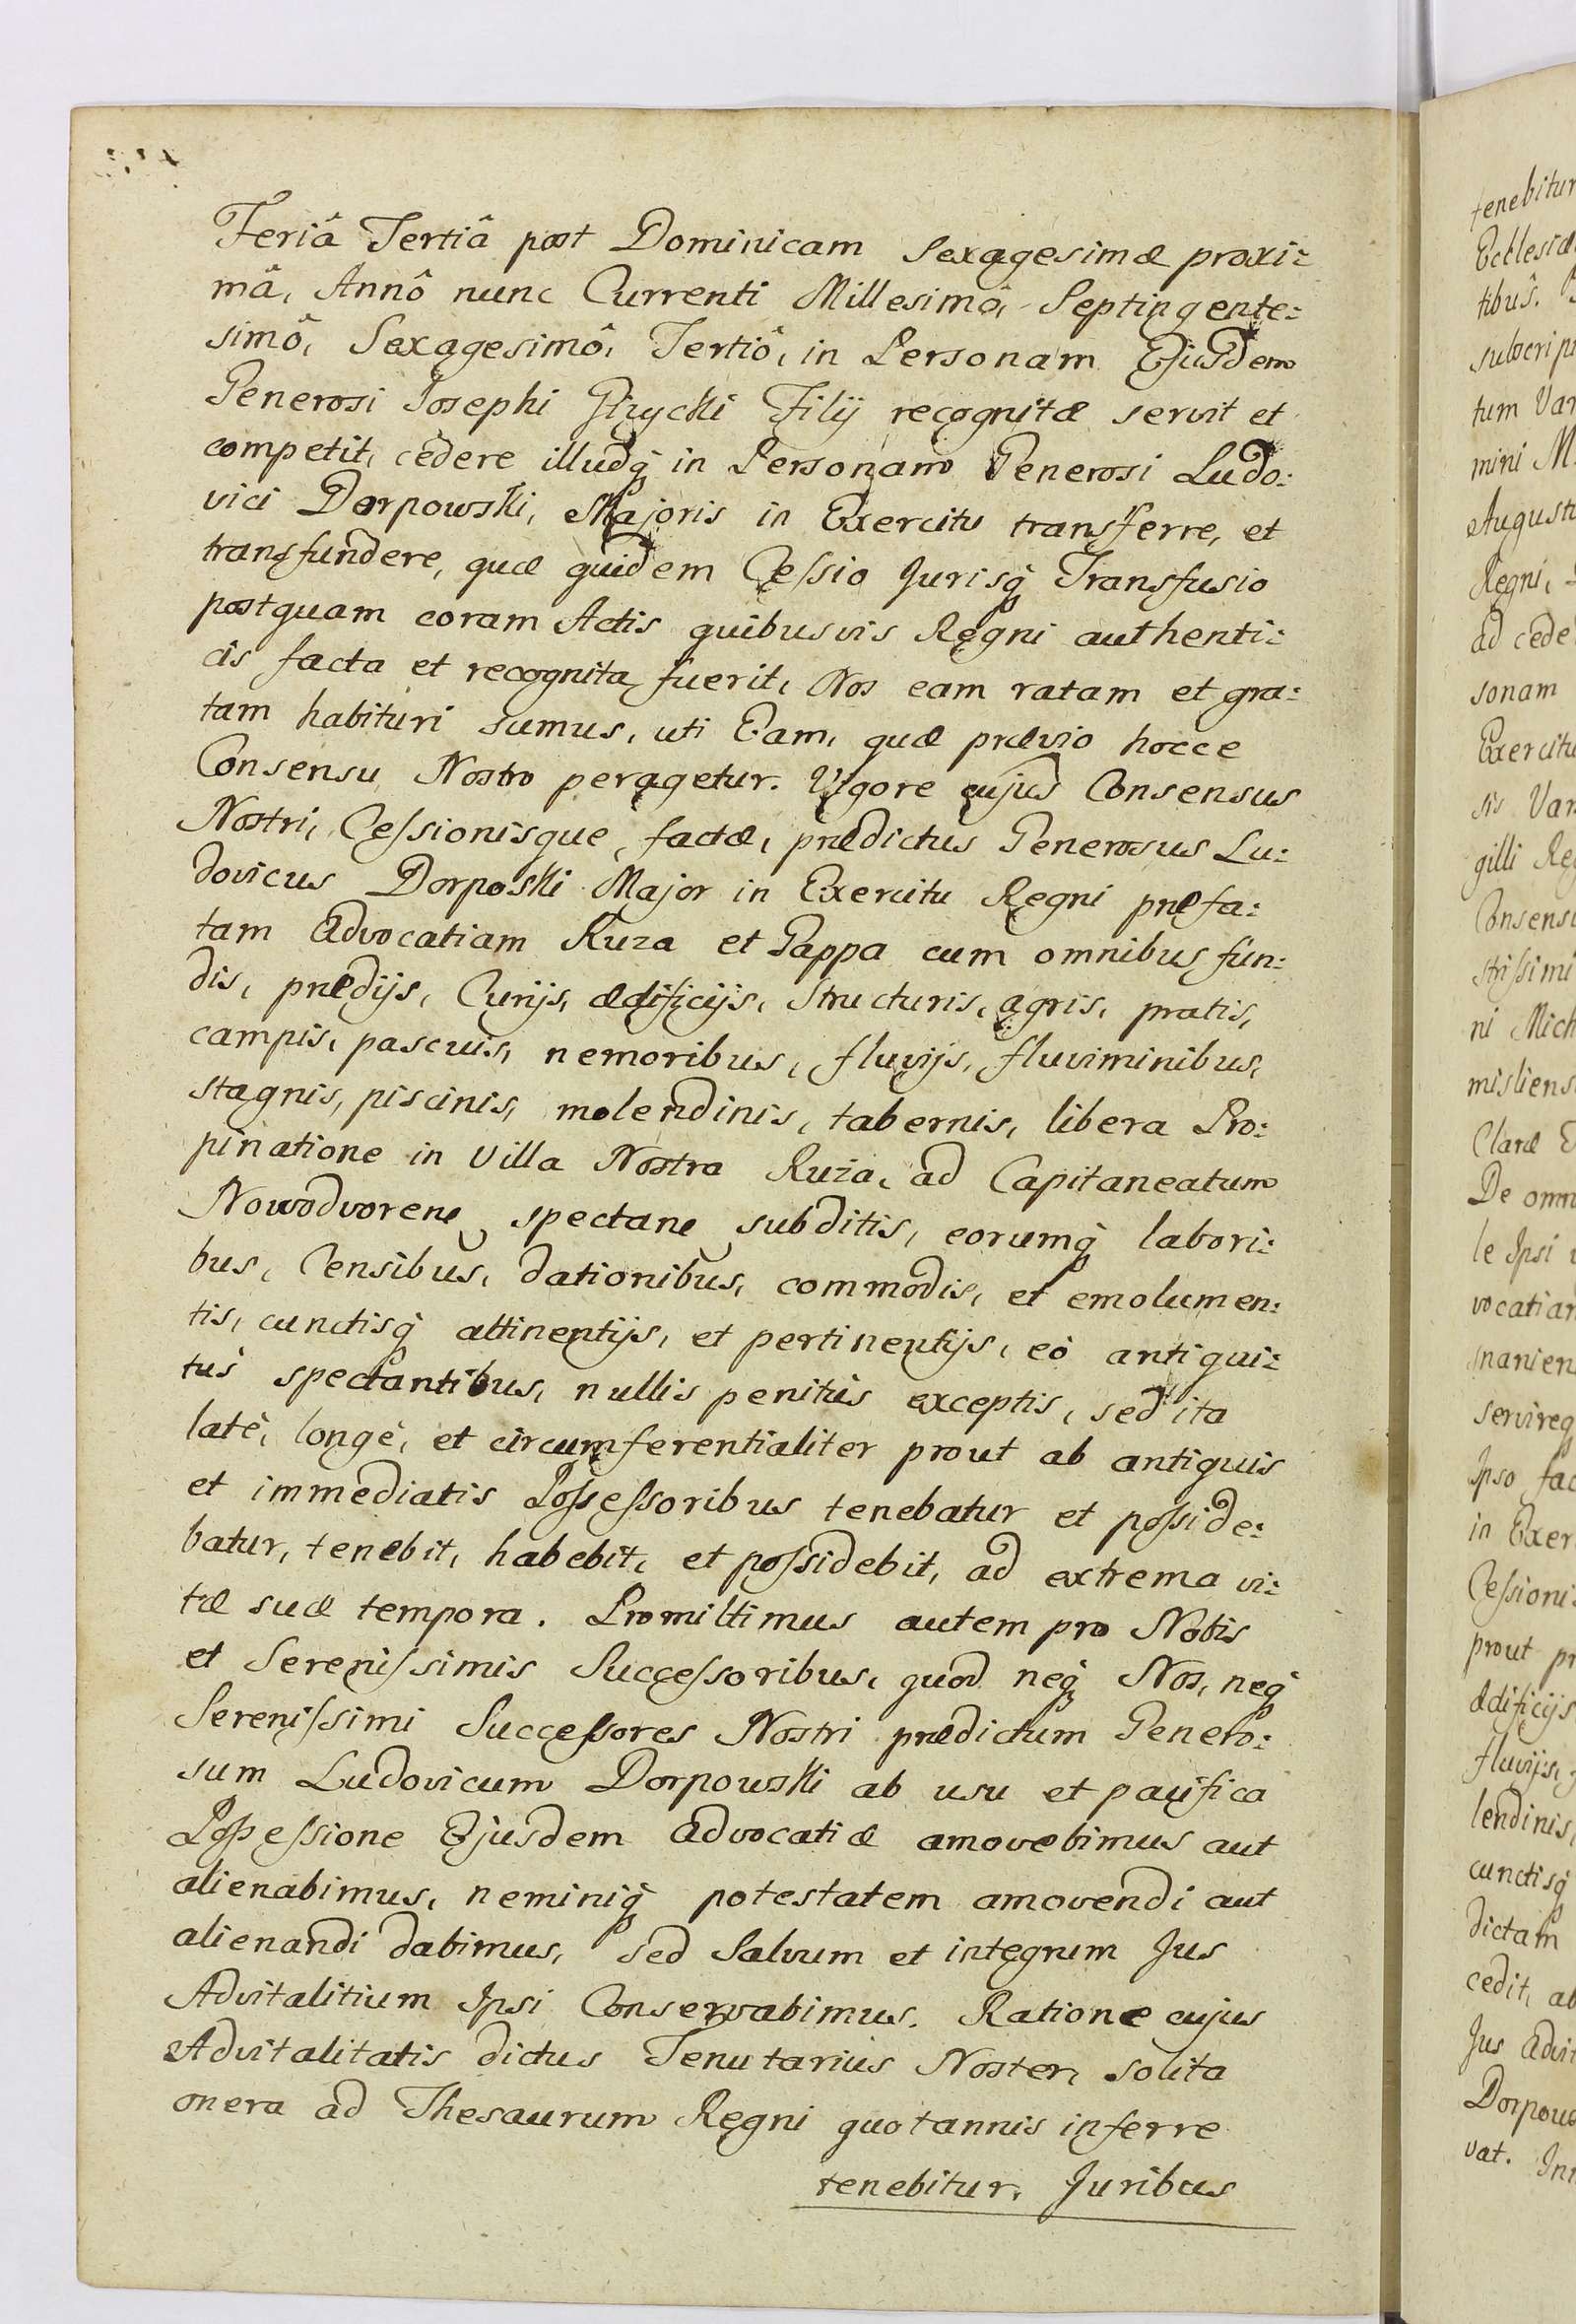 Feriâ Tertiâ post Dominicam Sexagesimæ proxi:
mâ, Annô nunc Currenti Millesimô, Septingente:
simô, Sexagesimô, Tertiô, in Personam Ejusdem
Generosi Josephi Giżycki Filij recognitæ servit et
competit, cedere illudq̀ in Personam Generosi Ludo:
vici Dorpowski, Majoris in Exercitu transferre, et
transfundere, quæ quidem Cessio Jurisq̀ Transfusio
postquam coram Actis quibusvis Regni authenti:
cis facta et recognita fuerit, Nos eam ratam et gra:
tam habituri sumus, uti Eam, quæ prævio hocce
Consensu Nostro peragetur. Vigore cujus Consensus
Nostri, Cessionisque, factæ, prædictus Generosus Lu:
dovicus Dorposki Major in Exercitu Regni præfa:
tam Advocatiam Ruza et Gappa cum omnibus fun:
dis, prædijs, Curijs, ædificijs, structuris, agris, pratis,
campis, pascuis, nemoribus, fluvijs, fluviminibus,
stagnis, piscinis, molendinis, tabernis, libera Pro:
pinatione in Villa Nostra Ruża, ad Capitaneatum
Nowodvorene spectane subditis, eorumq̀ labori:
bus, Censibus, dationibus, commodis, et emolumen:
tis, cunctisq̀ attinentijs, et pertinentijs, eò antiqui:
tùs spectantibus, nullis penitùs exceptis, sed ita
latè, longè, et circumferentialiter prout ab antiquis
et immediatis Possessoribus tenebatur et posside:
batur, tenebit, habebit, et possidebit, ad extrema vi:
tæ suæ tempora. Promittimus autem pro Nobis
et Serenissimis Successoribus, quod neq̀ Nos, neq̀
Serenissimi Successores Nostri prædictum Genero:
sum Ludovicum Dorpowski ab usu et pacifica
Possessione Ejusdem Advocatiæ amovebimus aut
alienabimus, neminiq̀ potestatem amovendi aut
alienandi dabimus, sed Salvum et integrum Jus
Advitalitium Ipsi Conservabimus. Ratione cujus
Advitalitatis dictus Tenutarius Noster, solita
onera ad Thesaurum Regni quotannis inferre
tenebitur. Juribus
tenebitur
Ecclesiæ
tibus.
subscrip
tum Var
mini M.
August
Regni,
ad cede
sonam
Exercitu
sis Var
gilli Re
Consens
strissimi
ni Mich
misliens
Claræ E
De omn
le Ipsi
vocatiam
nanien
servireq
Ipso fac
in Exer
Cessioni
prout pr
ædificijs
fluvijs,
lendinis,
cunctisq̀
dictam
cedit, ab
Jus Advit
Dorpow
vat. In